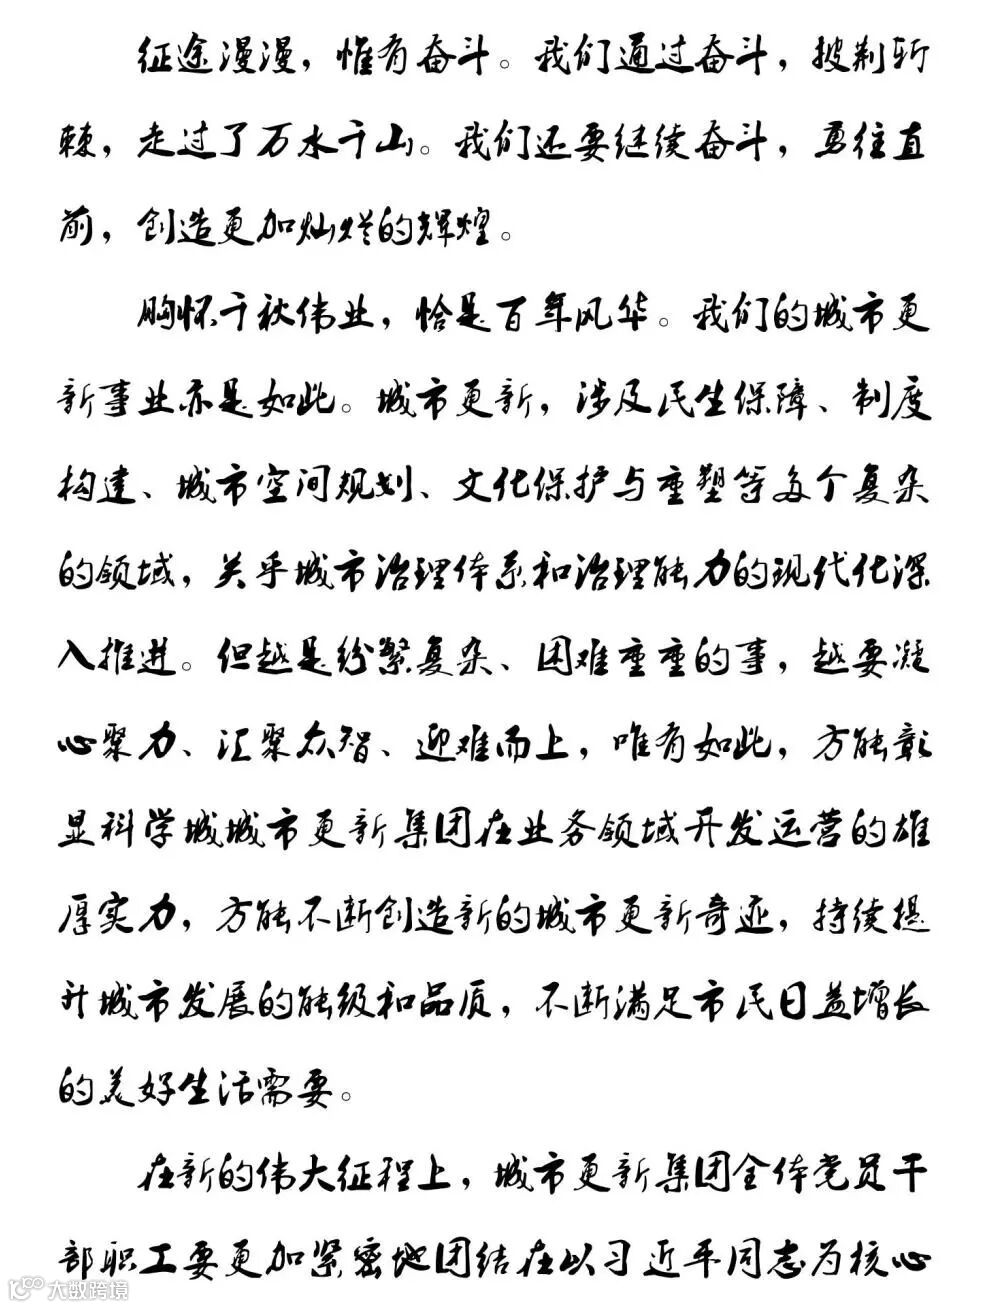 征途漫漫，惟有奋斗。我们通过奋斗，披荆斩
棘，走过了万水千山。我们还要继续奋斗，勇往直
前，创造更加灿烂的辉煌。
胸怀千秋伟业，恰是百年风华。我们的城市更
新事业亦是如此。城市更新，涉及民生保障、制度
构建、城市空间规划、文化保护与重塑等多个复杂
的领域，关乎城市治理体系和治理能力的现代化深
入推进。但越是纷繁复杂、困难重重的事，越要凝
心聚力、汇聚众智、迎难而上，唯有如此，方能彰
显科学城城市更新集团在业务领域开发运营的雄
厚实力，方能不断创造新的城市更新奇迹，持续提
升城市发展的能级和品质，不断满足市民日益增长
的美好生活需要。
在新的伟大征程上，城市更新集团全体党员干
部职工要更加紧密地团结在以习近平同志为核心
大数跨境